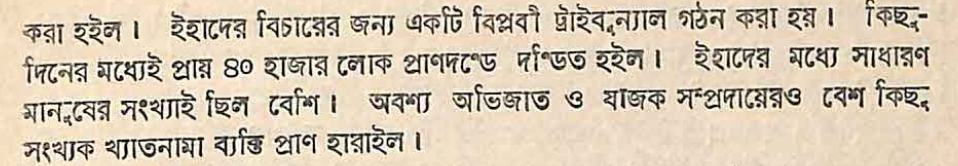 করা হইল। ইহাদের বিচারের জন্য একটি বিপ্লবী ট্রাইবুন্যাল গঠন করা হয়। কিছু-
দিনের মধ্যেই প্রায় ৪০ হাজার লোক প্রাণদণ্ডে দণ্ডিত হইল। ইহাদের মধ্যে সাধারণ
মানুষের সংখ্যাই ছিল বেশি। অবশ্য অভিজাত ও যাজক সম্প্রদায়েরও বেশ কিছু
সংখ্যক খ্যাতনামা ব্যক্তি প্রাণ হারাইল।